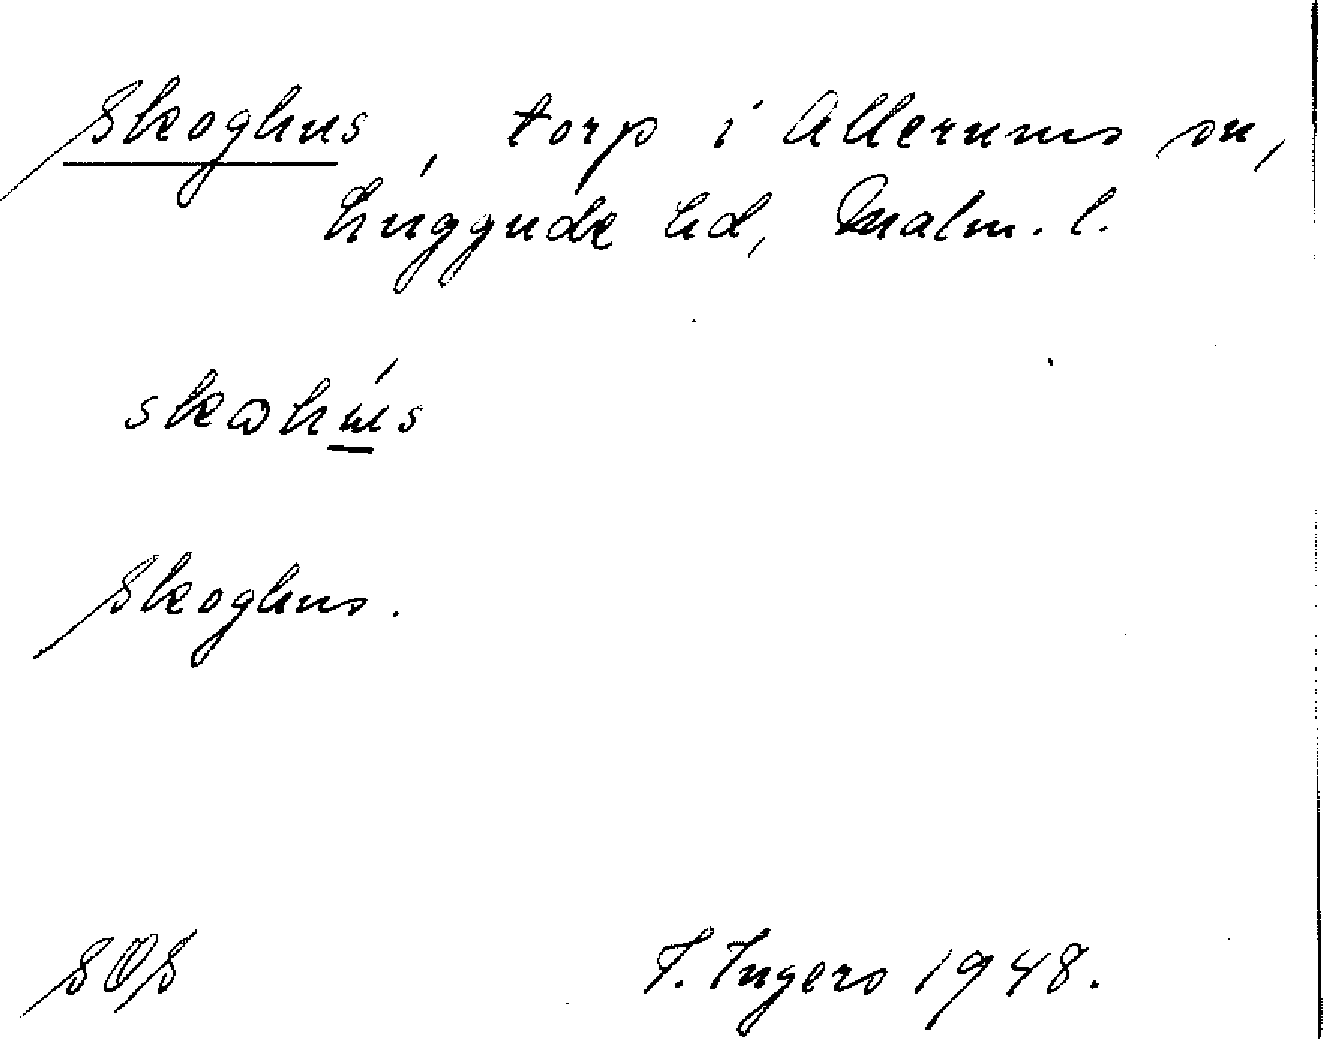 Skoghus, torp i Allerums sn,
Luggude hd, Malm. l.
Skoghus.
SOS I. Ingers 1948.